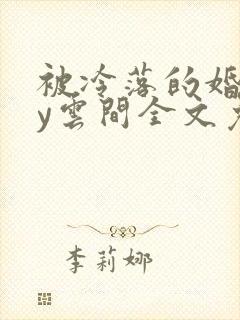 被冷落的婚
y雲間全文
李莉娜